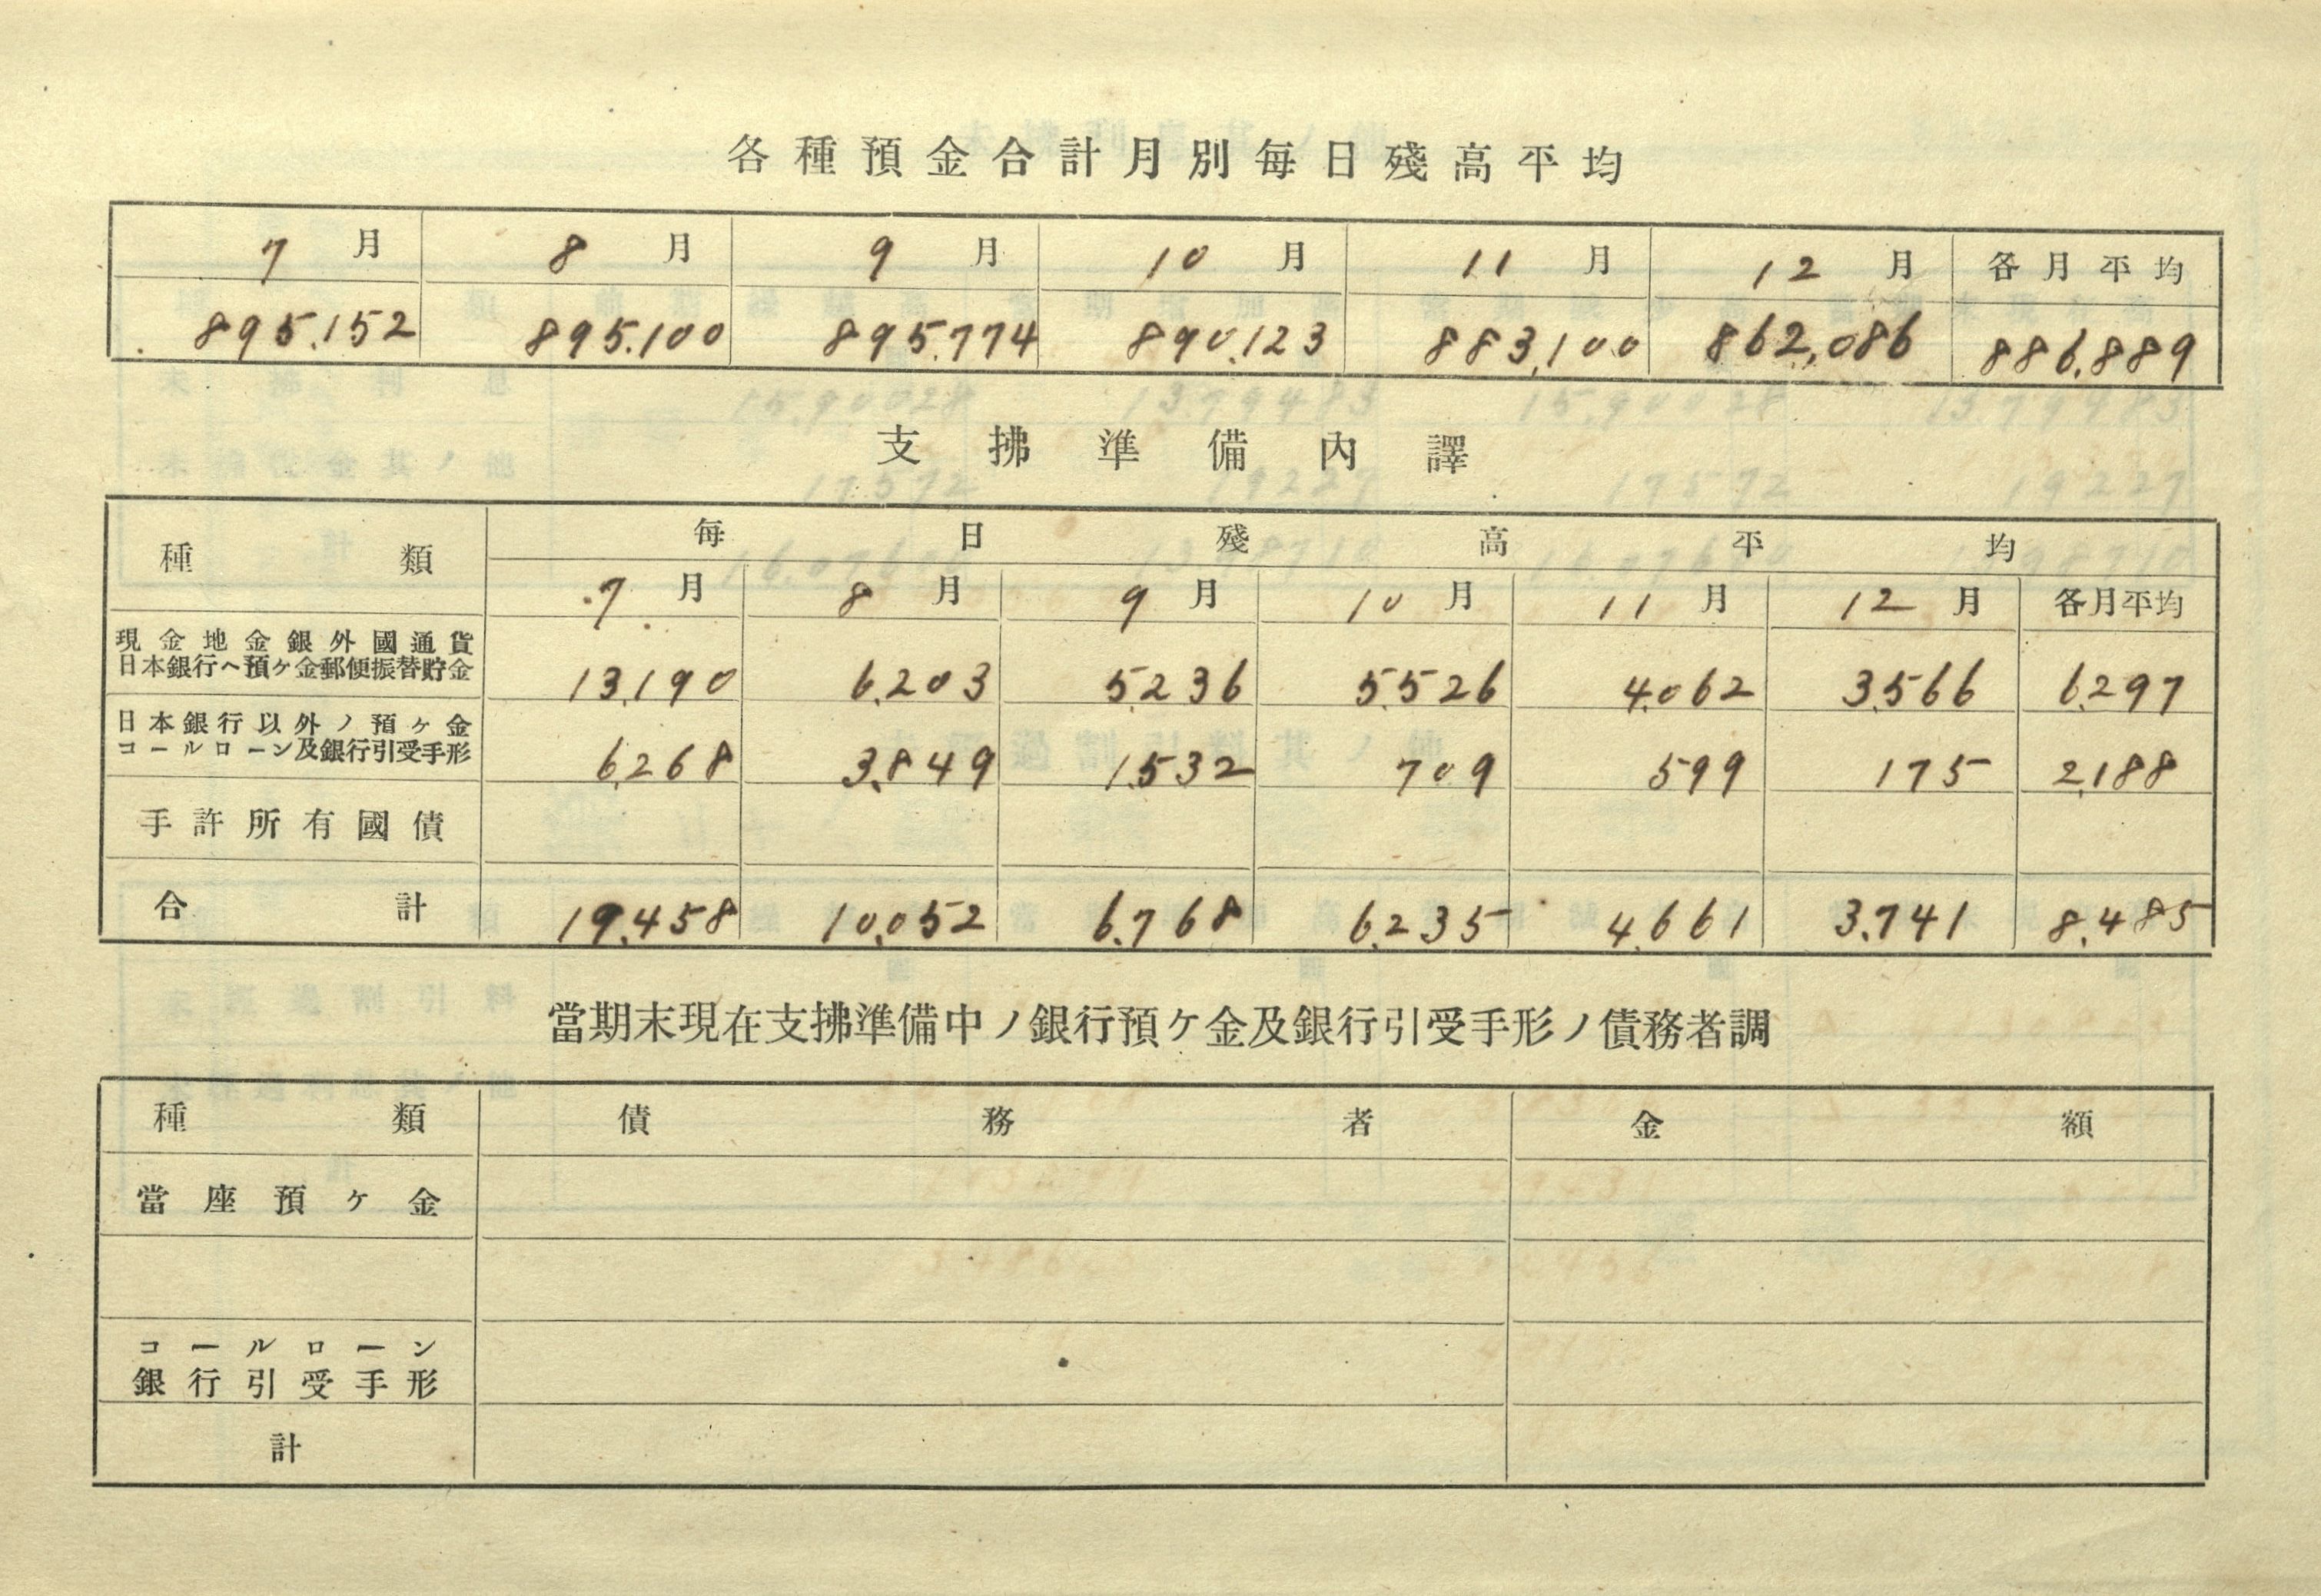 各種預金合計月別每日殘高平均
7月 8月 9月 10月 11月 12月 各月平均
895,152 895,100 895,774 890,123 883,100 862,086 886,889
支拂準備內譯
種類 每日殘高平均
7月 8月 9月 10月 11月 12月 各月平均
現金地金銀外國通貨
日本銀行ヘ預ケ金郵便振替貯金 13,190 6,203 5,236 5,526 4,062 3,566 6,297
日本銀行以外ノ預ケ金
コールローン及銀行引受手形 6,268 3,849 1,532 709 599 175 2,188
手許所有國債
合計 19,458 10,052 6,768 6,235 4,661 3,741 8,485
當期末現在支拂準備中ノ銀行預ケ金及銀行引受手形ノ債務者調
種類 債務者 金額
當座預ケ金
コールローン
銀行引受手形
計